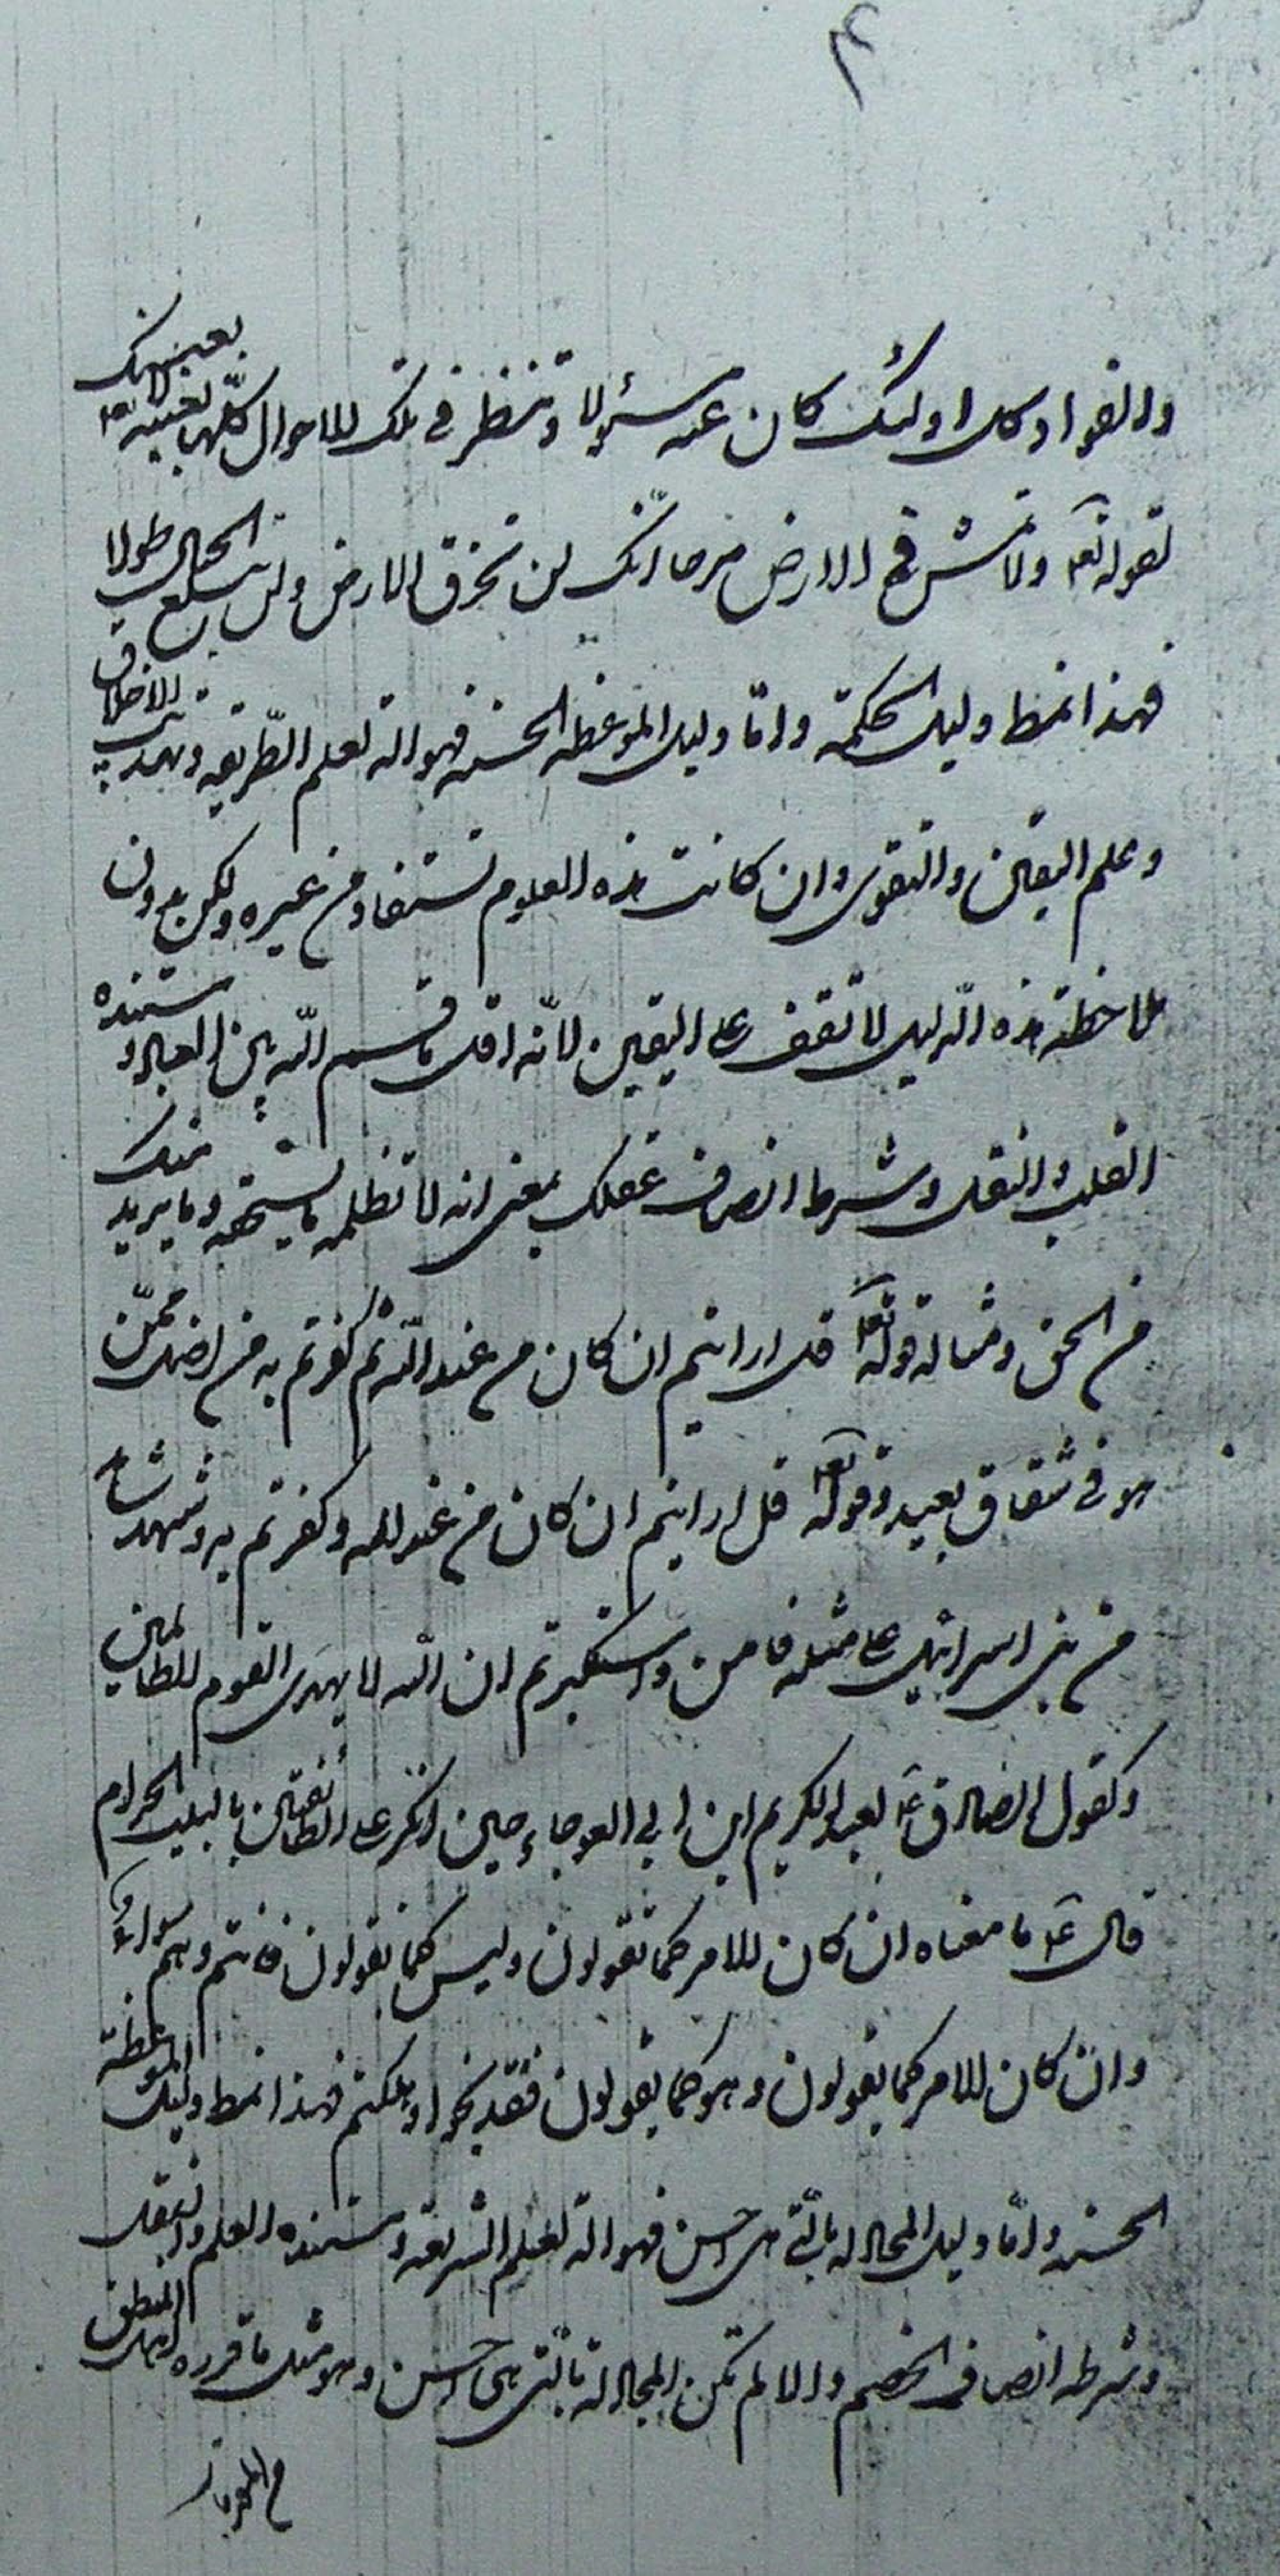 ٤
والفؤاد كل اولئك كان عنه مسؤلا وتنظر في تلك الاحوال كلها بعينه لا بعينك
لقوله تعا ولا تمش في الارض مرحا انك لن تخرق الارض ولن تبلغ الجبال طولا
فهذا نمط دليل الحكمة وامّا دليل الموعظة الحسنه فهو الة لعلم الطّريقه وتهذيب الاخلاق
وعلم اليقين والتقوى وان كانت هذه العلوم تستفاد من غيره ولكن بدون
ملاحظة هذه الدّليل لا تقف على اليقين لانّه اقل ما قسم اللّه بين العباد ومستنده
القلب والنقل وشرطه انصاف عقلك بمعنى انه لا تظلمه ما يستحقه وما يريد منك
من الحق ومثاله قوله تعا قل ارايتم ان كان من عند اللّه ثم كفرتم به من اضل ممّن
هو في شقاق بعيد وقوله تعا قل ارايتم ان كان من عند الله وكفرتم به وشهد شاهد
من بني اسرائيل على مثله فامن واستكبرتم ان اللّه لا يهدى القوم الظالمين
وكقول الصادق ع لعبد الكريم ابن ابي العوجاء حين انكر على الطائفين بالبيت الحرام
قال ع ما معناه ان كان الامر كما تقولون وليس كما تقولون فانتم وهم سواء
وان كان الامر كما يقولون وهو كما يقولون فقد نجوا وهلكتم فهذا نمط دليل الموعظة
الحسنه وامّا دليل المجادله بالّتي هي احسن فهو الة لعلم الشريعة ومستنده العلم والنقل
وشرطه انصاف الخصم والا لم تكن المجادلة بالّتى هى احسن وهو مثل ما قرره اهل المنطق
من المقدمات